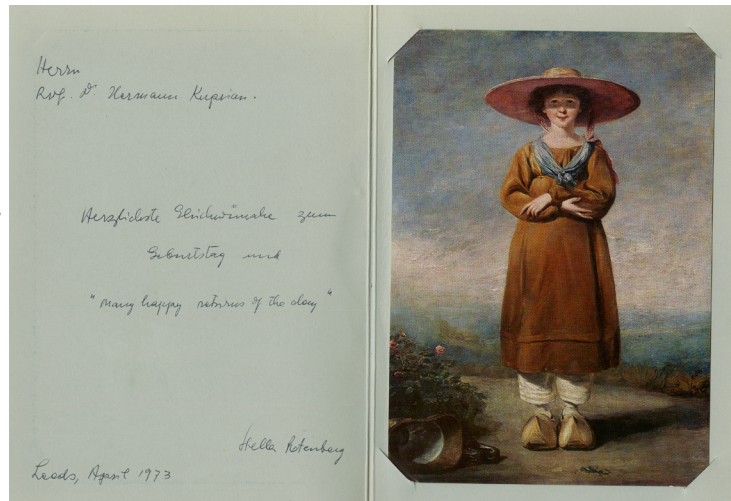 Herrn
Prof. Dr. Hermann Kuprian.
Herzlichste Glückwünsche zum
Geburtstag und
"many happy returns of the day"
Stella Rotenberg
Leeds, April 1973